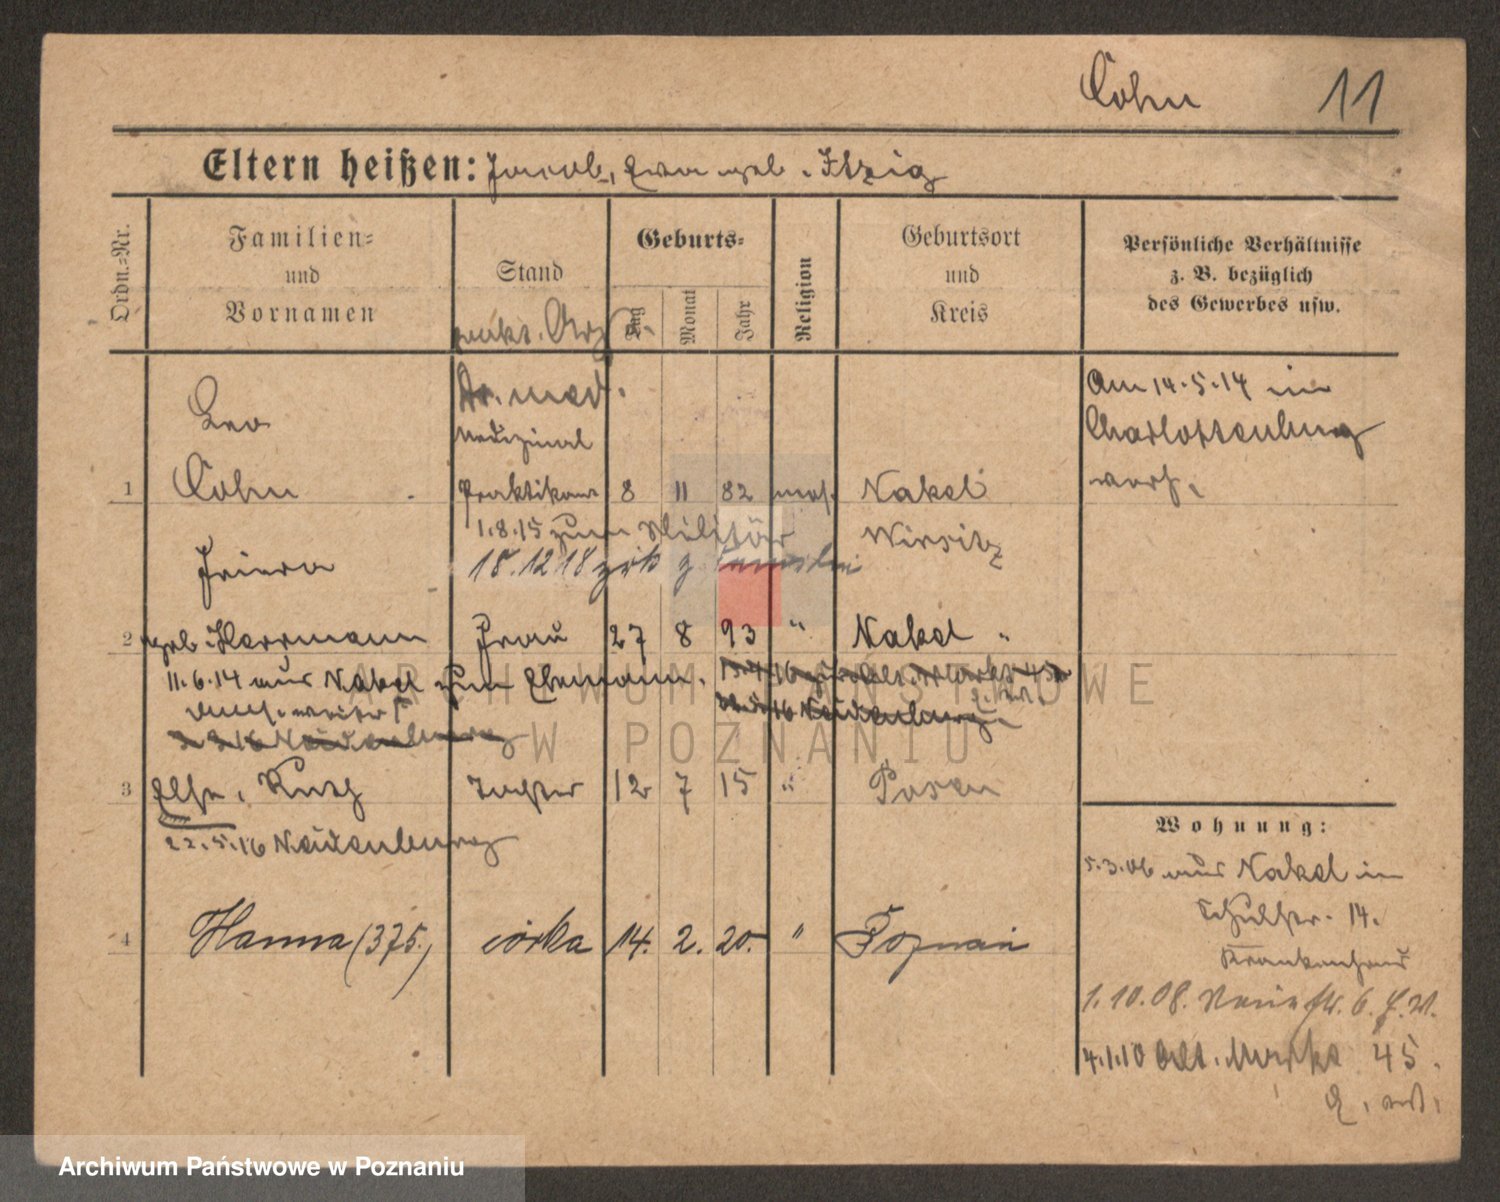 Cohn 11
Eltern heißen: Jacob, geb. Itzig
Ordn.-Nr.
Familien-
und
Vornamen
Stand
prakt. Arzt
Geburts-
Tag Monat Jahr
Religion
Geburtsort
und
Kreis
Persönliche Verhältnisse
z. B. bezüglich
des Gewerbes usw.
Leo
Dr. med.
Medizinal
1 Cohn Praktikant 8 11 82 mos. Nakel
Wirsitz
1.8.15 zum Militär
18.12 18 zrk
Am 14.5.14 in
Charlottenburg
verh.
2 geb. Herrmann Frau 27 8 93 " Nakel "
11.6.14 aus Nakel zum Ehemann.
16 Neidenburg
3.3.16 Neidenburg
3 Else, Ruth Tochter 12 7 15 " Posen
22.5.16 Neidenburg
4 Hanna (375.) córka 14. 2. 20. " Poznań
Wohnung:
5.3.06 aus Nakel in
Schulstr. 14.
Krankenhaus
1.10.08. 6.
4.1.10 Alt. Markt 45.
ARCHIWUM PAŃSTWOWE
W POZNANIU
Archiwum Państwowe w Poznaniu